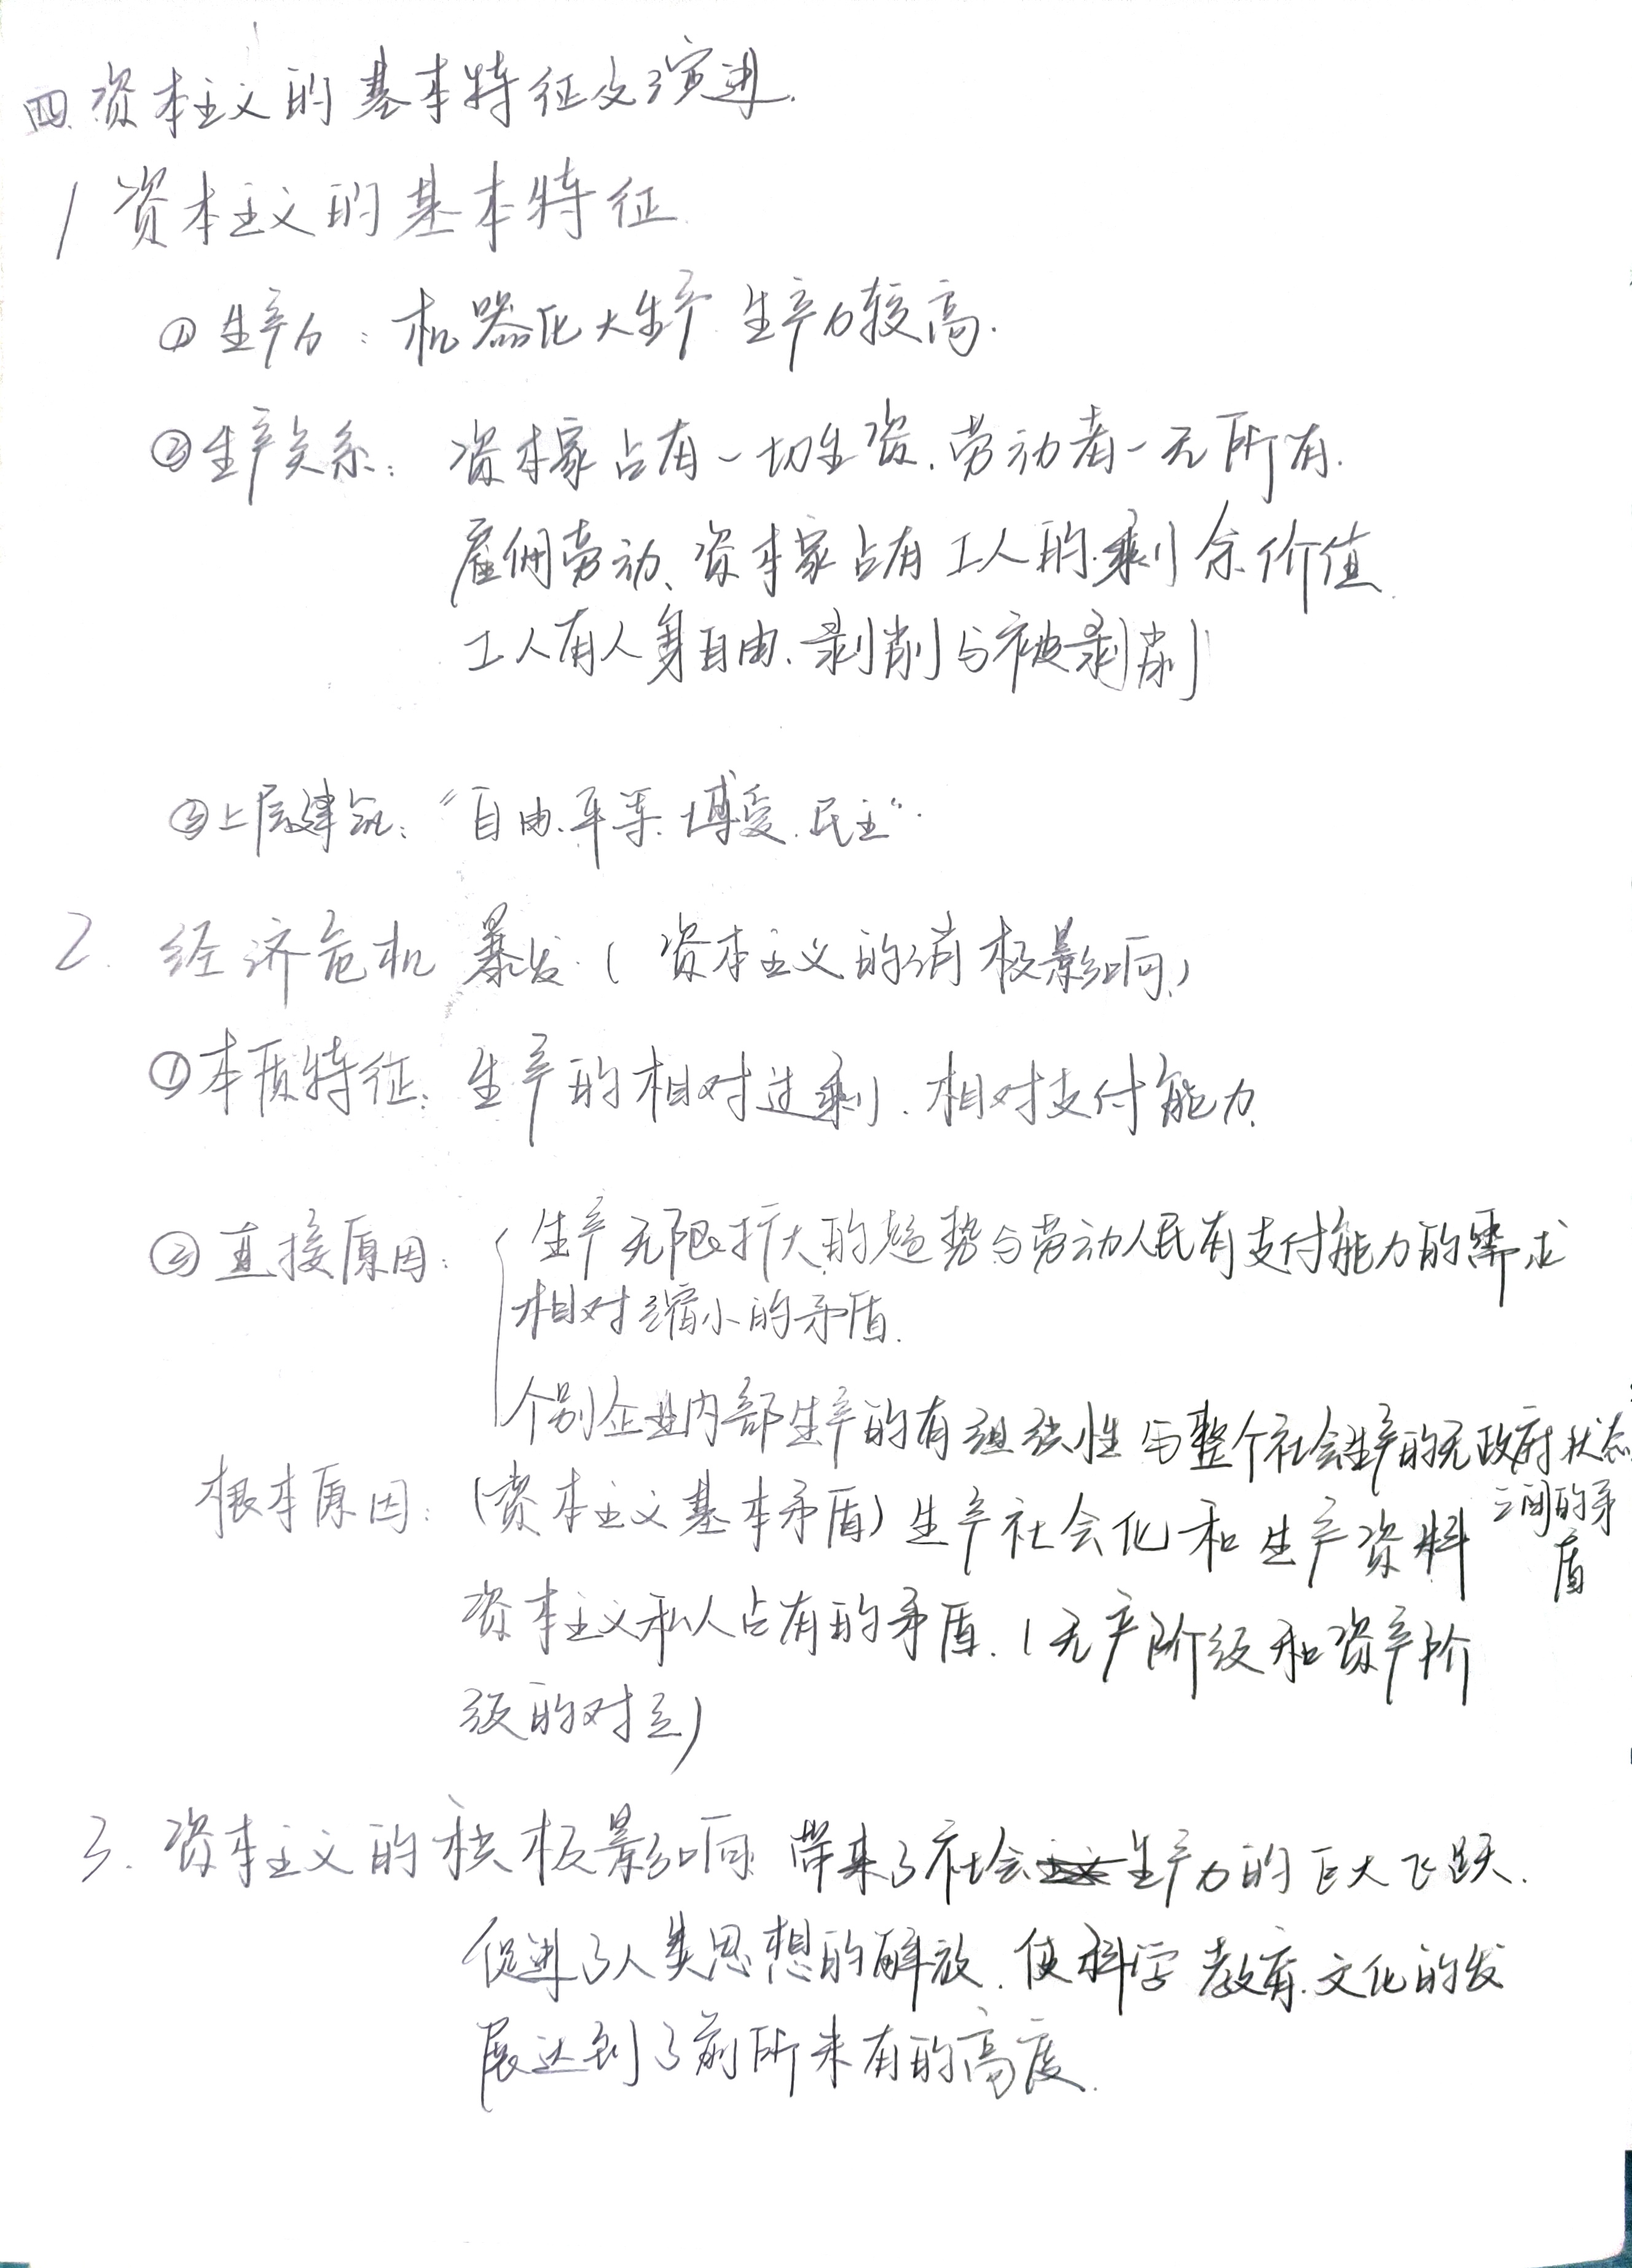 四.资本主义的基本特征及演进.
1 资本主义的基本特征.
①生产力：机器化大生产 生产力较高.
②生产关系：资本家占有一切生资.劳动者一无所有.
雇佣劳动、资本家占有工人的剩余价值.
工人有人身自由.剥削与被剥削
③上层建筑："自由.平等.博爱.民主".
2. 经济危机暴发.(资本主义的消极影响)
①本质特征：生产的相对过剩.相对支付能力.
②直接原因：生产无限扩大的趋势与劳动人民有支付能力的需求
相对缩小的矛盾.
个别企业内部生产的有组织性与整个社会生产的无政府状态
之间的矛
盾
根本原因：(资本主义基本矛盾)生产社会化和生产资料
资本主义私人占有的矛盾.(无产阶级和资产阶
级的对立)
3.资本主义的积极影响 带来了社会生产力的巨大飞跃.
促进了人类思想的解放.使科学 教育.文化的发
展达到了前所未有的高度.